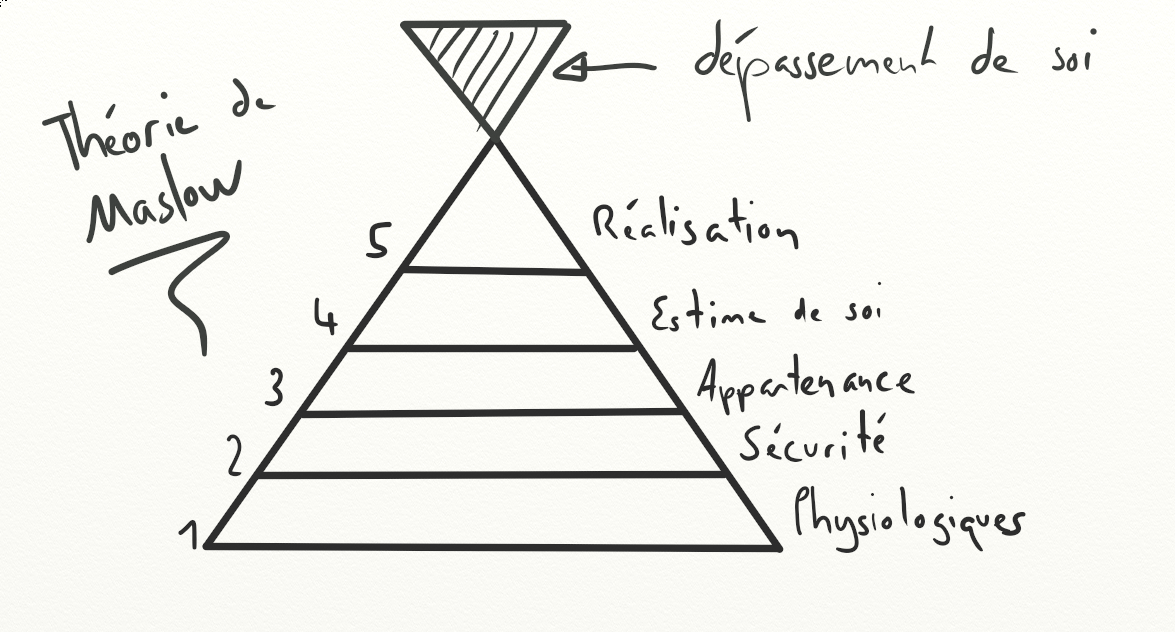 dépassement de soi
Théorie de
Maslow
5 Réalisation
4 Estime de soi
3 Appartenance
2 Sécurité
1 Physiologiques